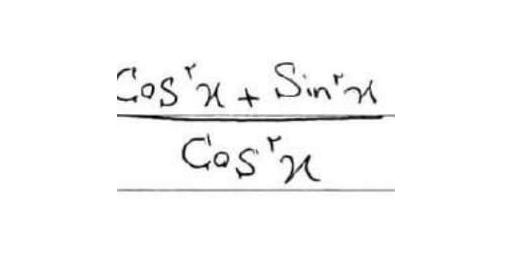 Cos²x + Sin²x
Cos²x